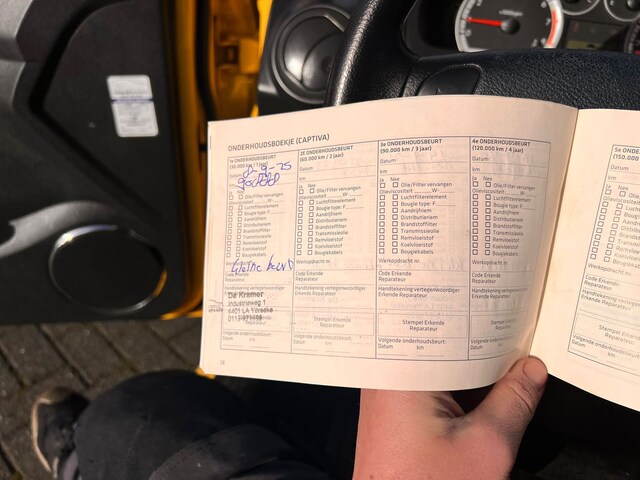 ONDERHOUDSBOEKJE (CAPTIVA)
1e ONDERHOUDSBEURT
(30.000 km / 1 jaar)
Datum
90000
Ja Nee
Olie/Filter vervangen
Olieviscositeit W-
Luchtfilterelement
Bougie type: F
Aandrijfriem
Distributieriem
Brandstoffilter
Transmissieolie
Remvloeistof
Koelvloeistof
Bougiekabels
Kleine beurt
Code Erkende
Reparateur
De Kramer
Industrieweg 1
Volgende onderhoudsbeurt:
Datum km
2e ONDERHOUDSBEURT
(60.000 km / 2 jaar)
Datum
km
Ja Nee
Olie/Filter vervangen
Olieviscositeit W-
Luchtfilterelement
Bougie type: F
Aandrijfriem
Distributieriem
Brandstoffilter
Transmissieolie
Remvloeistof
Koelvloeistof
Bougiekabels
Werkopdracht nr.
Code Erkende
Reparateur
Handtekening vertegenwoordiger
Erkende Reparateur
Stempel Erkende
Reparateur
Volgende onderhoudsbeurt:
Datum km
3e ONDERHOUDSBEURT
(90.000 km / 3 jaar)
Datum
km
Ja Nee
Olie/Filter vervangen
Olieviscositeit W-
Luchtfilterelement
Bougie type: F
Aandrijfriem
Distributieriem
Brandstoffilter
Transmissieolie
Remvloeistof
Koelvloeistof
Bougiekabels
Werkopdracht nr.
Code Erkende
Reparateur
Handtekening vertegenwoordiger
Erkende Reparateur
Stempel Erkende
Reparateur
Volgende onderhoudsbeurt:
Datum km
4e ONDERHOUDSBEURT
(120.000 km / 4 jaar)
Datum
km
Ja Nee
Olie/Filter vervangen
Olieviscositeit W-
Luchtfilterelement
Bougie type: F
Aandrijfriem
Distributieriem
Brandstoffilter
Transmissieolie
Remvloeistof
Koelvloeistof
Bougiekabels
Werkopdracht nr.
Code Erkende
Reparateur
Handtekening vertegenwoordiger
Erkende Reparateur
Stempel Erkende
Reparateur
Volgende onderhoudsbeurt:
Datum km
5e ONDE
(150.000
Datum
km
Ja